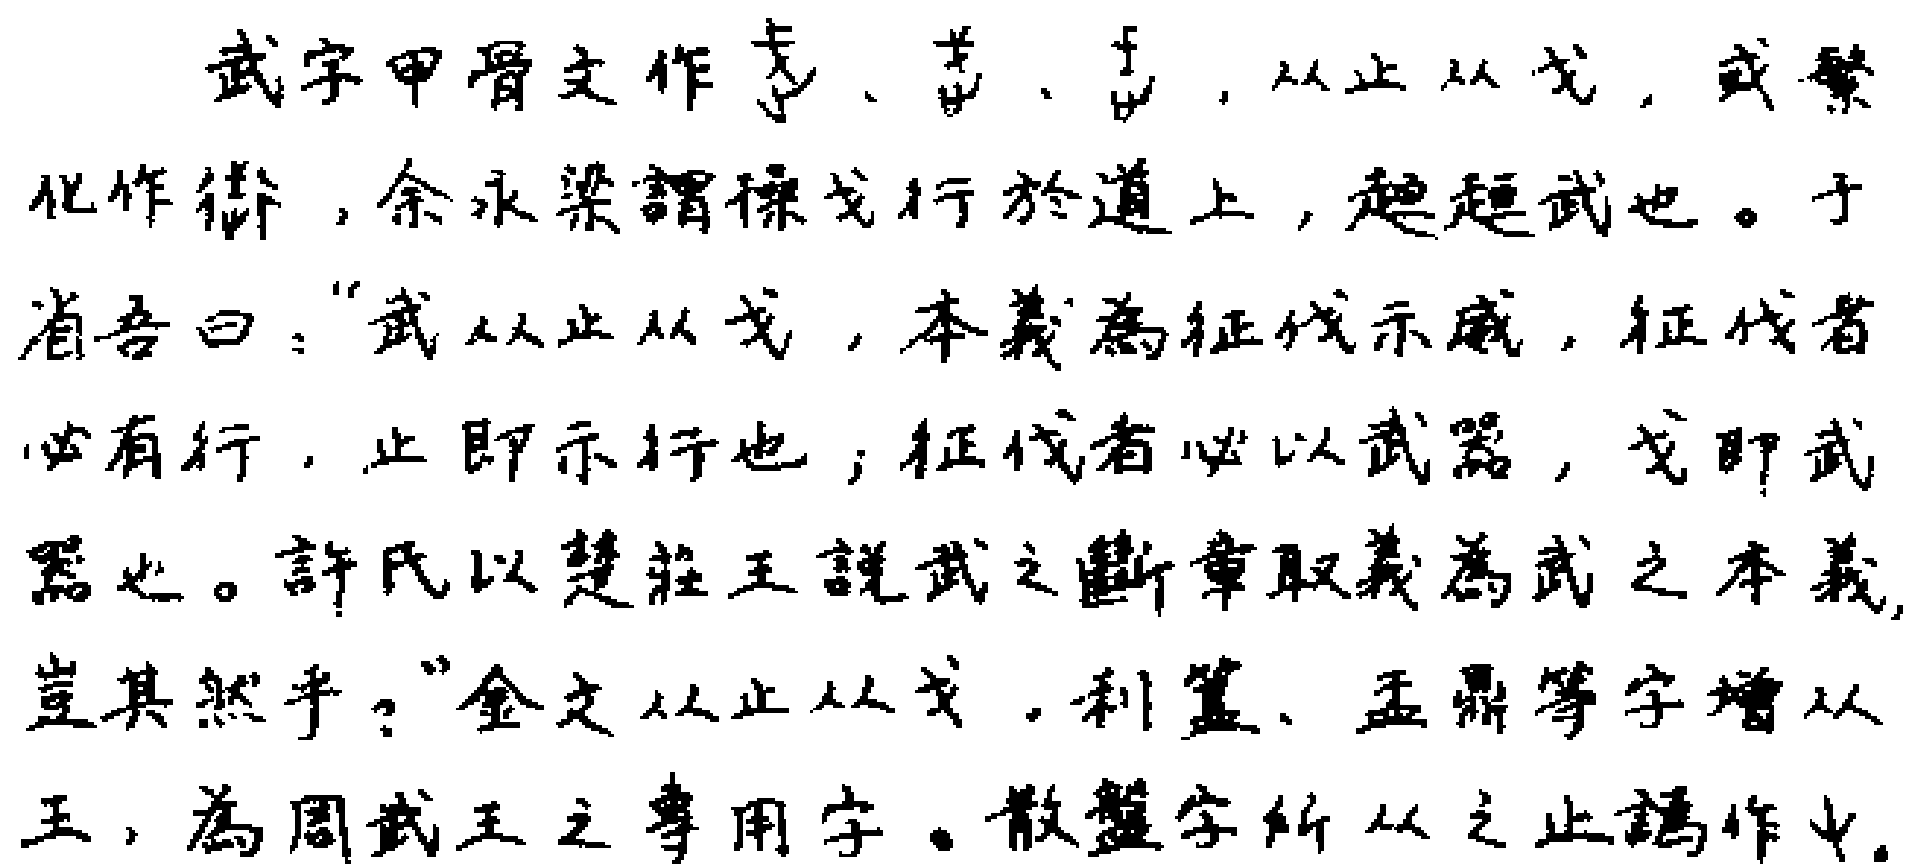 武字甲骨文作、、,从止从戈,或繁
化作,余永梁謂操戈行於道上,趄趄武也。于
省吾曰:“武从止从戈,本義為征伐示威,征伐者
必有行,止即示行也;征伐者必以武器,戈即武
器也。許氏以楚莊王說武之斷章取義為武之本義,
豈其然乎?”金文从止从戈,利簋、盂鼎等字增从
王,為周武王之專用字。散盤字所从之止譌作。